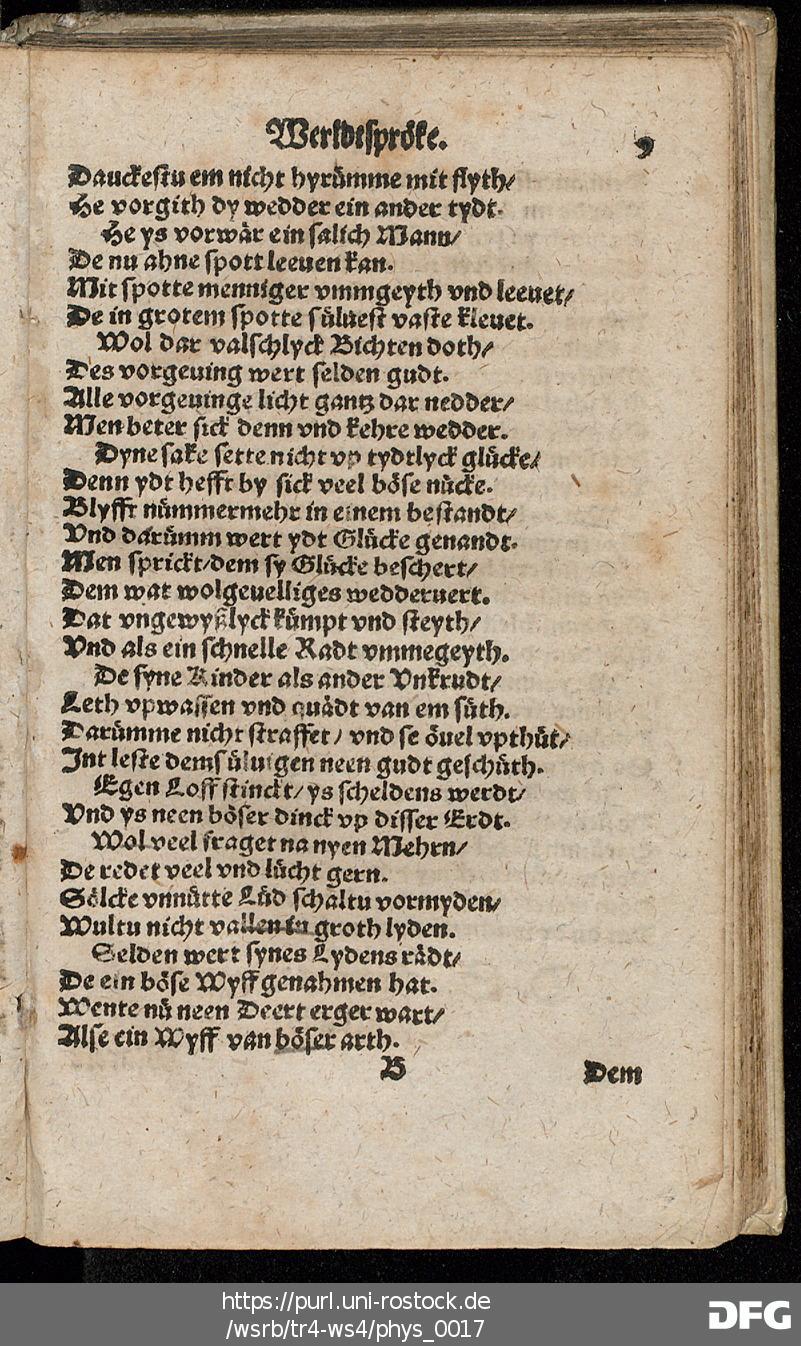 Werldtspröke. 9
Danckestu em nicht hyrümme mit flyth/
He vorgith dy wedder ein ander tydt.
He ys vorwär ein salich Mann/
De nu ahne spott leeuen kan.
Mit spotte menniger vmmgeyth vnd leeuet/
De in grotem spotte süluest vaste kleuet.
Wol dar valschlyck Bichten doth/
Des vorgeuing wert selden gudt.
Alle vorgeuinge licht gantz dar nedder/
Men beter sick denn vnd kehre wedder.
Dyne sake sette nicht vp tydtlyck glücke/
Denn ydt hefft by sick veel böse nücke.
Blyfft nümmermehr in einem bestandt/
Vnd darümm wert ydt Glücke genandt.
Men sprickt/dem sy Glücke beschert/
Dem wat wolgeuelliges wedderuert.
Dat vngewyßlyck kümpt vnd steyth/
Vnd als ein schnelle Radt vmmegeyth.
De syne Kinder als ander Vnkrudt/
Leth vpwassen vnd quädt van em süth.
Darümme nicht straffet/ vnd se öuel vpthüt/
Int leste demsüluigen neen gudt geschüth.
Egen Loff stinckt/ ys scheldens werdt/
Vnd ys neen böser dinck vp disser Erdt.
Wol veel fraget na nyen Mehrn/
De redet veel vnd lücht gern.
Sölcke vnnütte Lüd schaltu vormyden/
Wultu nicht vallen in groth lyden.
Selden wert synes Lydens rädt/
De ein böse Wyff genahmen hat.
Wente nü neen Deert erger wart/
Alse ein Wyff van böser arth.
B Dem
https://purl.uni-rostock.de
/wsrb/tr4-ws4/phys_0017
DFG